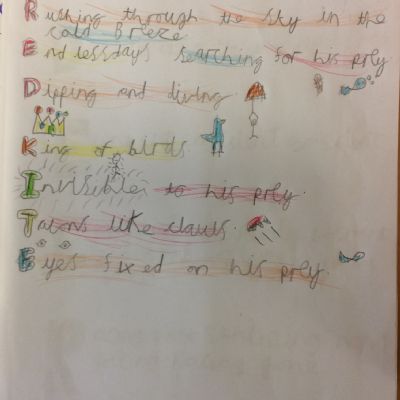 Rushing through the sky in the
cold breeze
Endlessdays searching for his prey
Dipping and diving.
King of birds.
Invisible to his prey.
Talons like claws.
Eyes fixed on his prey.